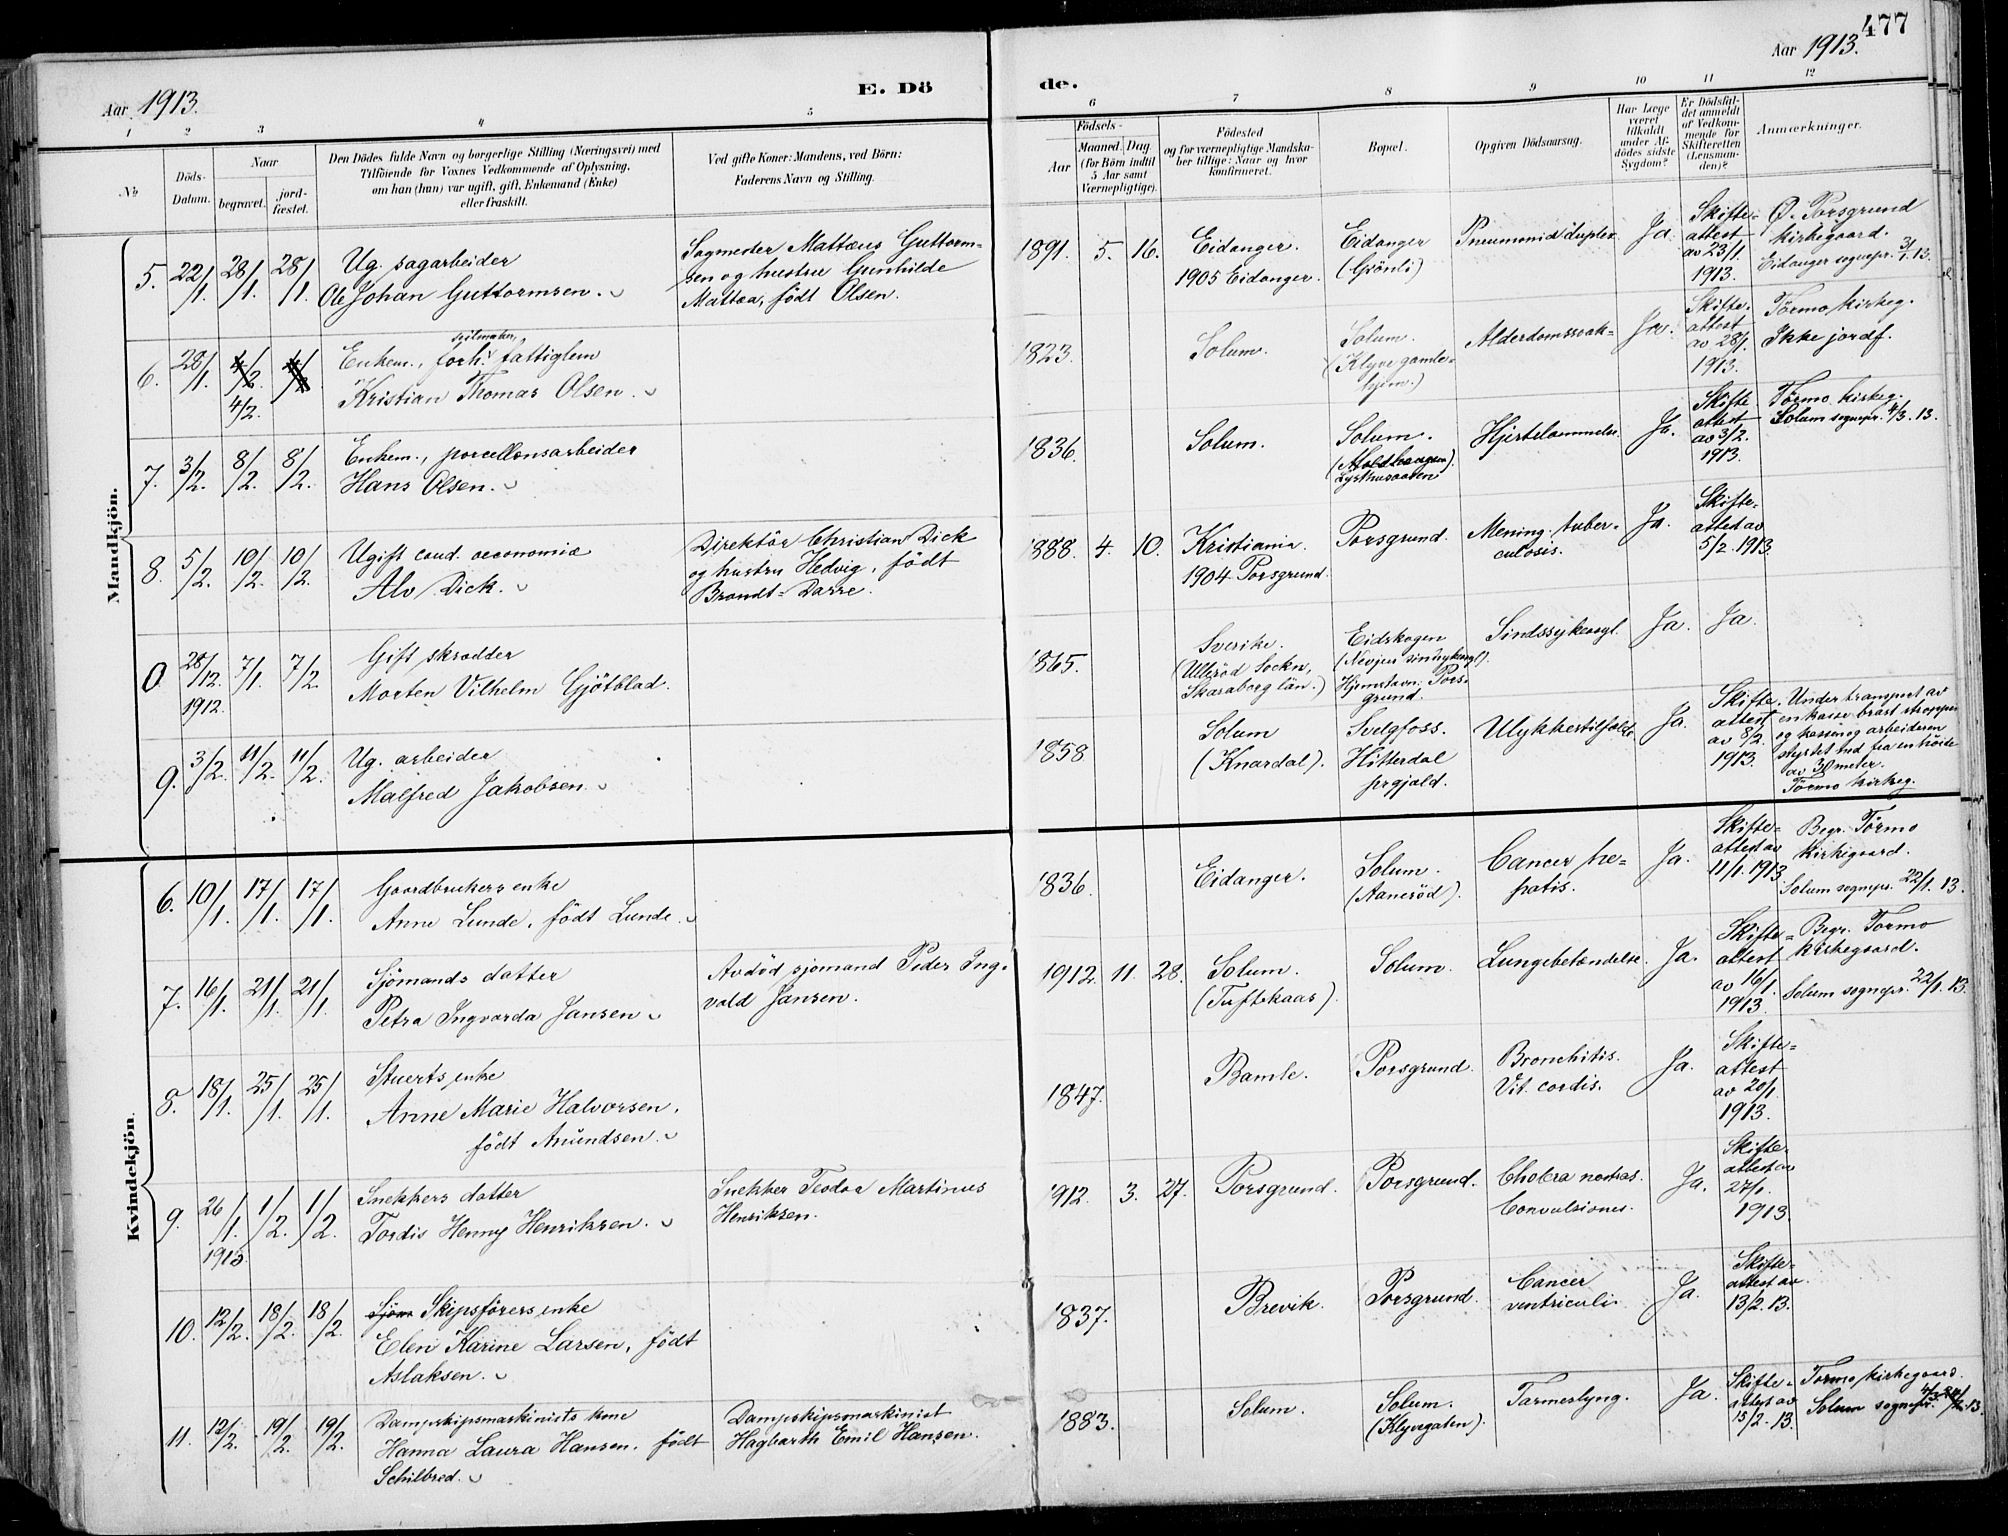 477
Aar 1913.
E. Dö
de.
Aar 1913.
1 2 3 4 5 6 7 8 9 10 11 12
No
Döds-Datum.
Naar
begravet.
jord-fæstet.
Den Dödes fulde Navn og borgerlige Stilling (Næringsvei) med
Tilföiende for Voxnes Vedkommende af Oplysning,
om han (hun) var ugift, gift, Enkemand (Enke)
eller fraskilt.
Ved gifte Koner: Mandens, ved Börn:
Faderens Navn og Stilling.
Födsels-
Aar
Maaned. Dag.
(for Börn indtil
5 Aar samt
Værnepligtige).
Födested
og for værnepligtige Mandska-
ber tillige: Naar og hvor
konfirmeret.
Bopæl.
Opgiven Dödsaarsag.
Har Læge
været
tilkaldt
under Af-
dödes sidste
Sygdom?
Er Dödsfal-
det anmeldt
af Vedkom-
mende for
Skifteretten
(Lensman-
den)?
Anmærkninger.
Mandkjön.
5. 22/1. 28/1. 28/1.
Ug. sagarbeider
Ole Johan Guttormsen.
Sagmester Mattæus Guttorm-
sen og hustru Gunhilde
Mattea, födt Olsen.
1891. 5. 16.
Eidanger.
1905 Eidanger.
Eidanger
(Grönli)
Pneumonia duplex.
Ja.
Skifte-
attest
av 23/1.
1913.
Ø. Porsgrund
kirkegaard.
Eidanger sognepr. 31/1. 13.
6. 28/1. 4/2.
Enkem., forh. seilmaker, fattiglem
Kristian Thomas Olsen.
1823.
Solum.
Solum.
(Klyve gamle-
hjem.)
Alderdomssvak-
Ja.
Skifte-
attest
av 28/1.
1913.
Tørmo kirkeg.
Ikke jordf.
7. 3/2. 8/2. 8/2.
Enkem., porcellænsarbeider
Hans Olsen.
1836.
Solum.
Solum.
Hjertelammelse
Ja.
Skifte
attest
av 3/2.
1913.
Tørmo kirkeg.
Solum sognepr. 4/3. 13.
8. 5/2. 10/2. 10/2.
Ugift cand. oeconomiæ
Alv Dick.
Direktör Christian Dick
og hustru Hedvig, födt
Brandt-Darre.
1888. 4. 10.
Kristiania.
1904 Porsgrund.
Porsgrund.
Mening. tuber-
culosis.
Ja.
Skifte-
attest av
5/2. 1913.
0. 28/12. 1912. 7/1. 7/2.
Gift skrædder
Morten Vilhelm Gjötblad.
1865.
Sverike.
(Ulleröd Sockn,
Skaraborg län.)
Eidskogen
Hjemstavn: Pors-
grund.
Sindssykeasyl.
Ja.
Ja.
9. 3/2. 11/2. 11/2.
Ug. arbeider
Malfred Jakobsen.
1858
Solum
(Knardal).
Svelgfoss.
Hitterdal
prgjæld.
Ulykkestilfælde
Ja.
Skifte-
attest
av 8/2.
1913.
Under transport av
en kasse brast stroppen
og kassen og arbeideren
styrtet ned fra en höide
av 30 meter.
Tørmo kirkeg.
Kvindekjön.
6. 10/1. 17/1. 17/1.
Gaardbrukers enke
Anne Lunde, födt Lunde.
1836.
Eidanger.
Solum.
(Aaneröd).
Cancer he-
patis.
Ja.
Skifte-
attest av
11/1. 1913
Begr. Tørmo
kirkegaard.
Solum sognepr. 22/1. 13.
7. 16/1. 21/1. 21/1.
Sjömands datter
Petra Ingvarda Jansen.
Avdöd sjömand Peder Ing-
vald Jansen.
1912. 11. 28.
Solum.
(Tuftekaas).
Solum.
Lungebetændelse.
Ja.
Skifte-
attest
av 16/1.
1913.
Begr. Tørmo
kirkegaard.
Solum sognepr. 22/1. 13.
8. 18/1. 25/1. 25/1.
Stuerts enke
Anne Marie Halvorsen,
födt Amundsen.
1847.
Bamle.
Porsgrund.
Bronchitis.
Vit. cordis.
Ja.
Skifte-
attest
av 20/1.
1913.
9. 26/1. 1913. 1/2. 1/2.
Snekkers datter
Tordis Henny Henriksen.
Snekker Teodor Martinus
Henriksen.
1912. 3. 27.
Porsgrund.
Porsgrund.
Cholera nostras.
Convulsiones.
Ja.
Skifte-
attest av
27/1.
1913.
10. 12/2. 18/2. 18/2.
Sjöm Skipsförers enke
Elen Karine Larsen, födt
Aslaksen.
1837.
Brevik.
Porsgrund.
Cancer
ventriculi.
Ja.
Skifte-
attest av
13/2. 13.
11. 12/2. 19/2. 19/2.
Dampskipsmaskinists kone
Hanna Laura Hansen, födt
Schilbred.
Dampskipsmaskinist
Hagbarth Emil Hansen.
1883.
Solum.
Solum.
(Klyvegaten).
Tarmeslyng.
Ja.
Skifte-
attest av
15/2. 13.
Tørmo kirkegaard.
Solum sognepr. 4/3. 13.